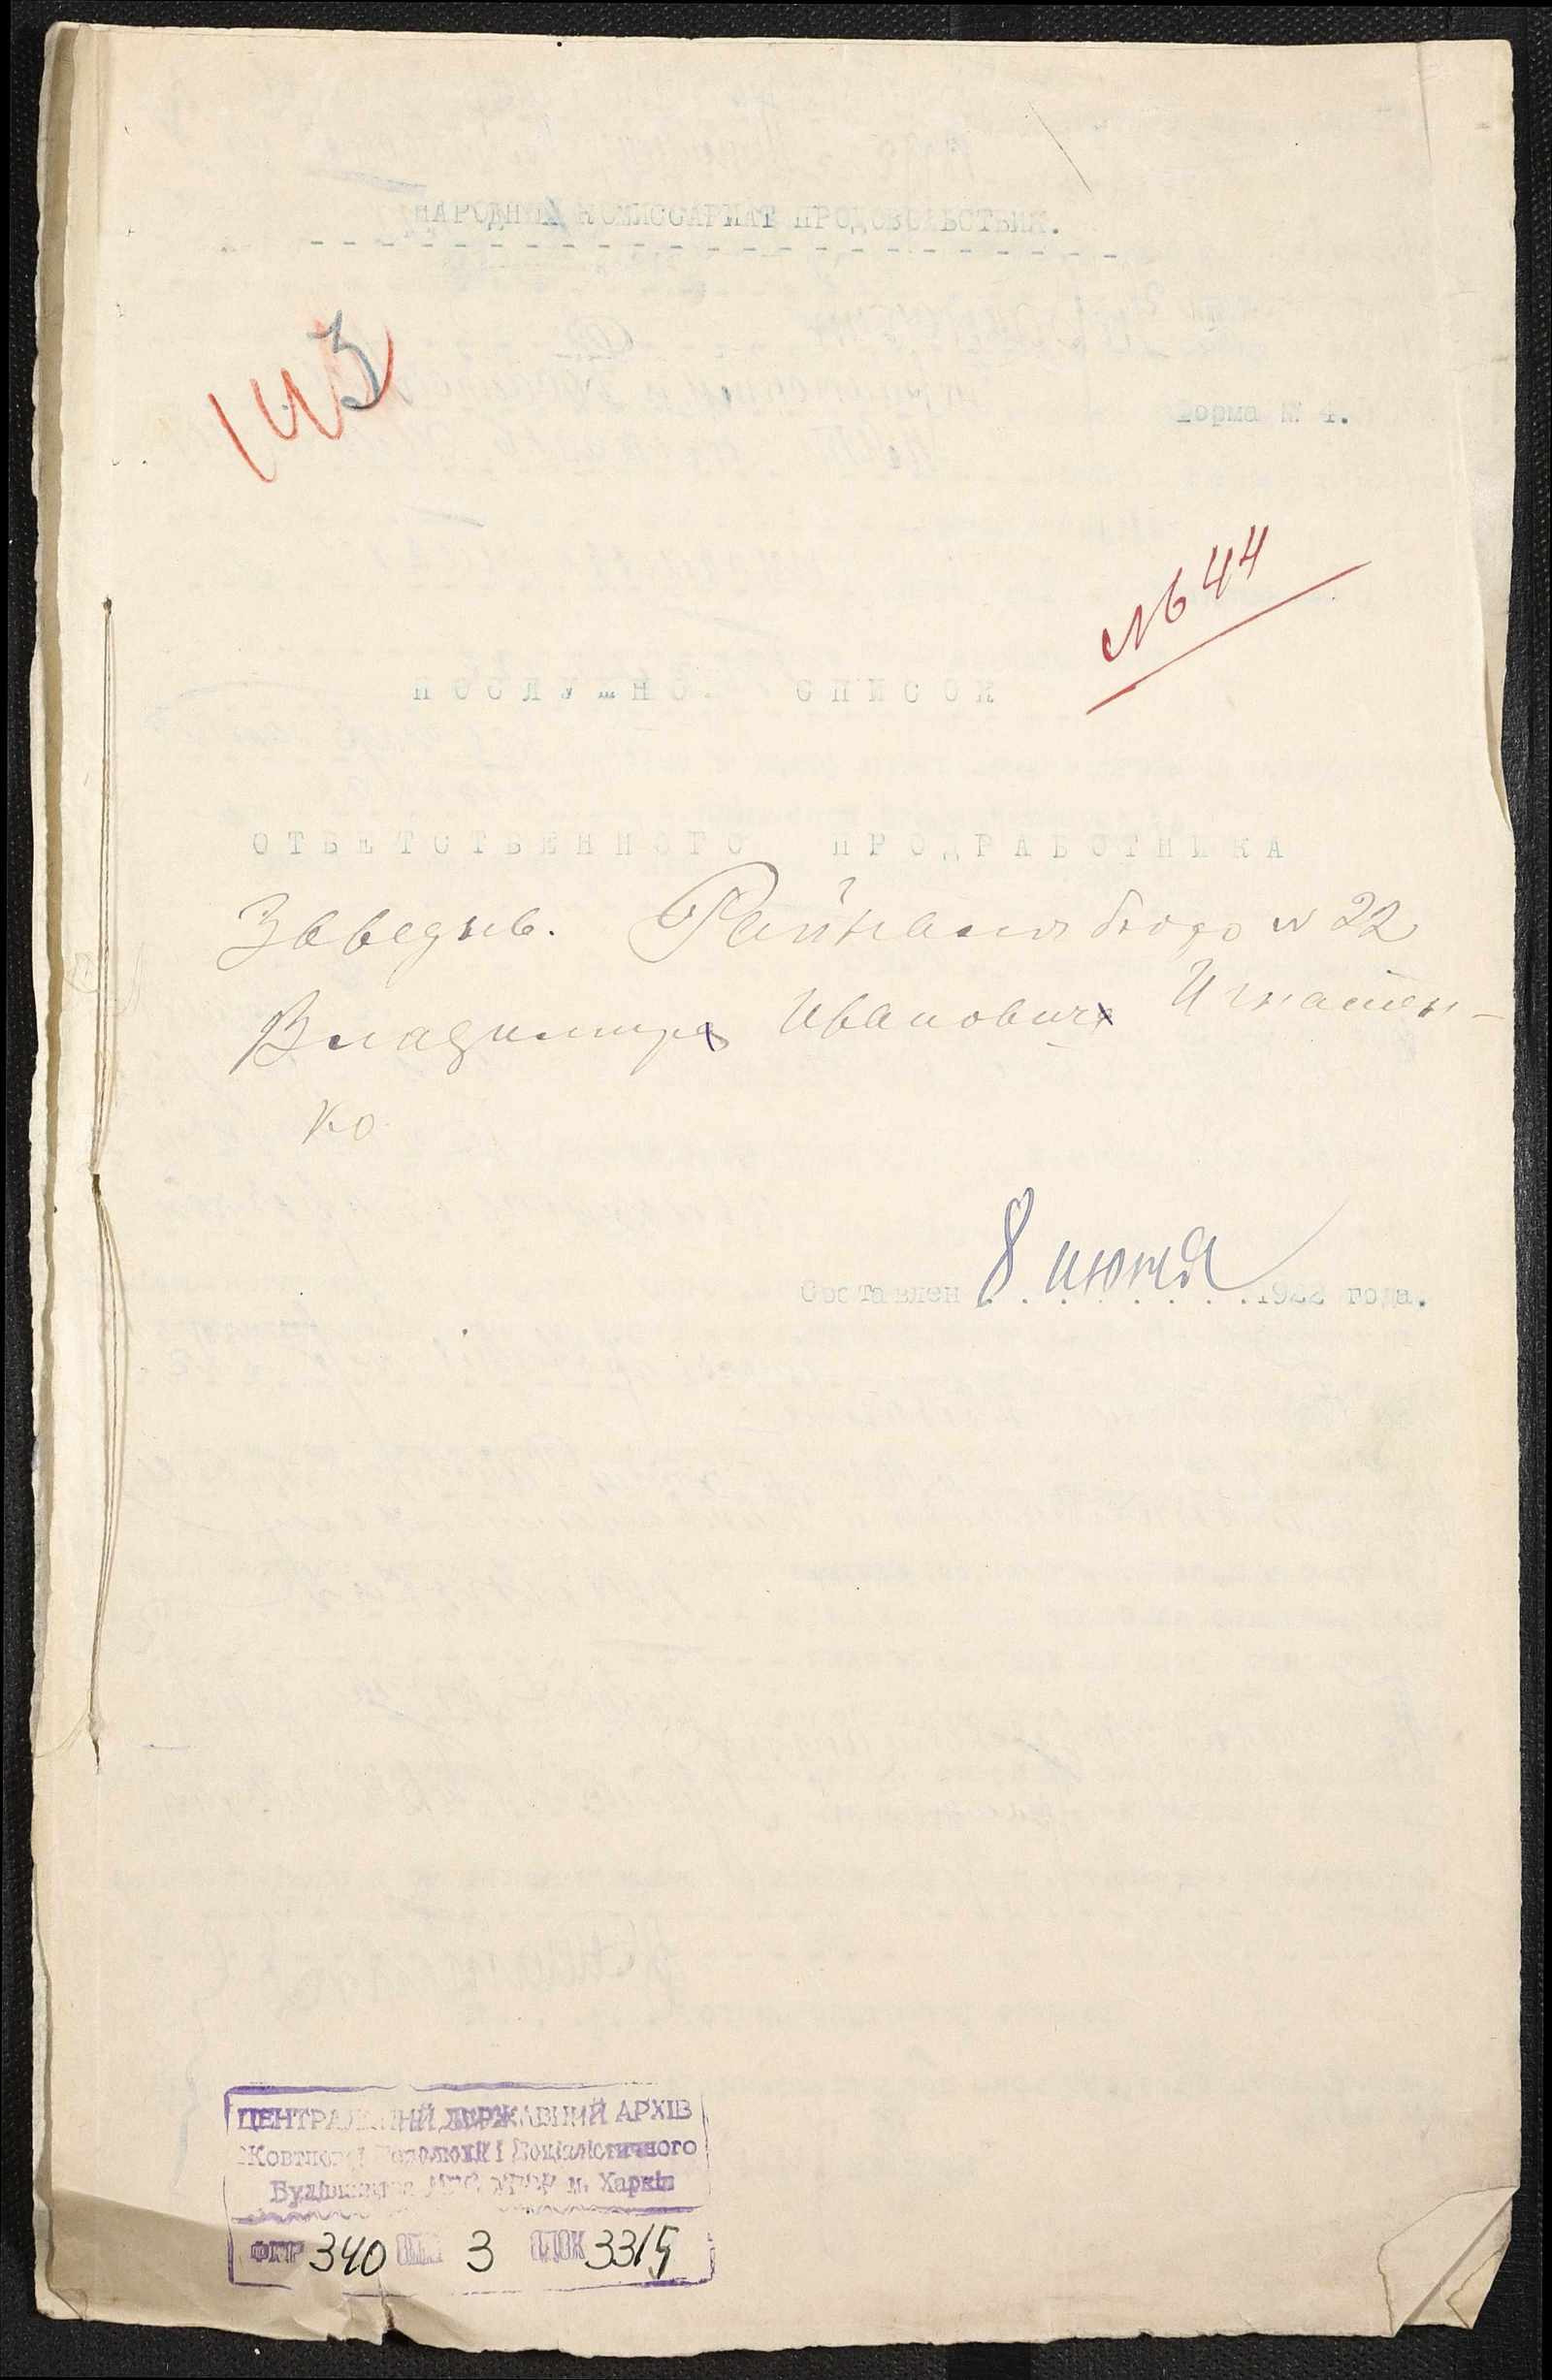 НАРОДНЫЙ КОМИССАРИАТ ПРОДОВОЛЬСТВИЯ.
143
Форма № 4.
№ 44
ПОСЛУЖНОЙ СПИСОК
ОТВЕТСТВЕННОГО ПРОДРАБОТНИКА
Заведыв. Райналогбюро № 22
Владимира Ивановича Игнатен-
ко
Составлен 8 июня 1922 года.
ЦЕНТРАЛЬНИЙ ДЕРЖАВНИЙ АРХІВ
Жовтневої Революції і Соціалістичного
Будівництва УРСР м. Харків
ФКР 340 ОПИС 3 ОД.ЗБ 3315